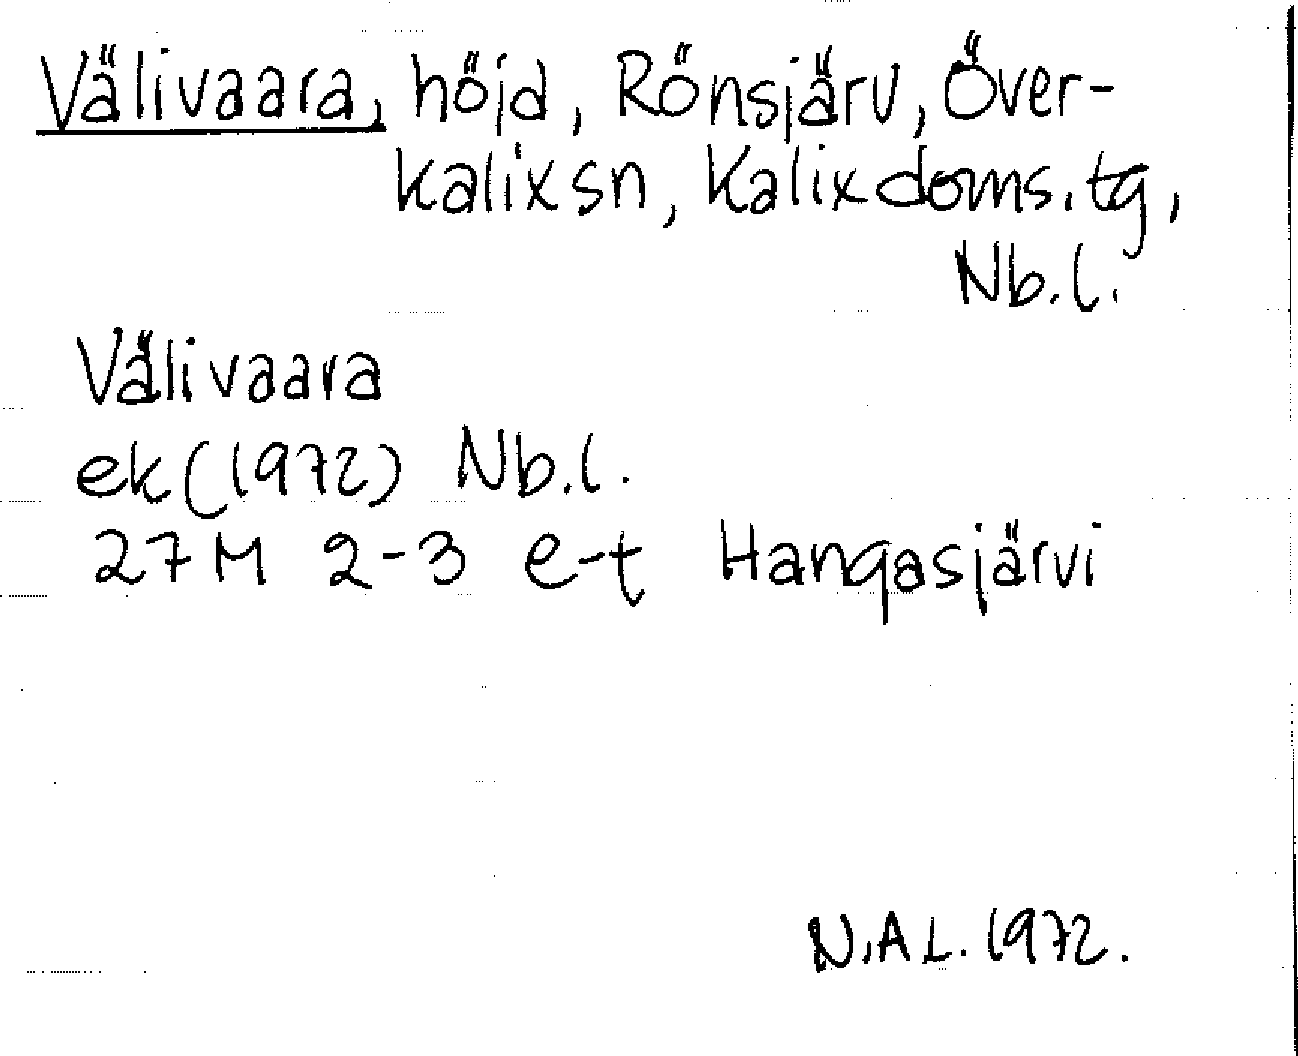 Välivaara, höjd, Rönsjärv, Över-
kalix sn, Kalix doms.tg,
Nb.l.
Välivaara
ek (1972) Nb.l.
27M 2-3 e-t Hangasjärvi
N.A L. 1972.